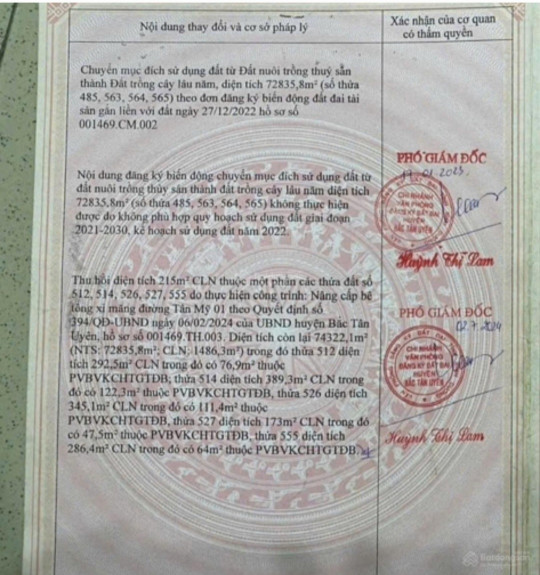 Nội dung thay đổi và cơ sở pháp lý
Xác nhận của cơ quan
có thẩm quyền
Chuyển mục đích sử dụng đất từ Đất nuôi trồng thuỷ sản
thành Đất trồng cây lâu năm, diện tích 72835,8m² (số thửa
485, 563, 564, 565) theo đơn đăng ký biến động đất đai tài
sản gắn liền với đất ngày 27/12/2022 hồ sơ số
001469.CM.002
Nội dung đăng ký biến động chuyển mục đích sử dụng đất từ
đất nuôi trồng thủy sản thành đất trồng cây lâu năm diện tích
72835,8m² (số thửa 485, 563, 564, 565) không thực hiện
được do không phù hợp quy hoạch sử dụng đất giai đoạn
2021-2030, kế hoạch sử dụng đất năm 2022.
PHÓ GIÁM ĐỐC
17.01.2023.
CHI NHÁNH
VĂN PHÒNG
ĐĂNG KÝ ĐẤT ĐAI
HUYỆN
BẮC TÂN UYÊN
Huỳnh Thị Lam
Thu hồi diện tích 215m² CLN thuộc một phần các thửa đất số
512, 514, 526, 527, 555 do thực hiện công trình: Nâng cấp bê
tông xi măng đường Tân Mỹ 01 theo Quyết định số
394/QĐ-UBND ngày 06/02/2024 của UBND huyện Bắc Tân
Uyên, hồ sơ số 001469.TH.003. Diện tích còn lại 74322,1m²
(NTS: 72835,8m²; CLN: 1486,3m²) trong đó thửa 512 diện
tích 292,5m² trong đó có 76,9m² thuộc
PVBVKCHTGTĐB, thửa 514 diện tích 389,3m² CLN trong
đó có 122,3m² thuộc PVBVKCHTGTĐB, thửa 526 diện tích
345,1m² CLN trong đó có 111,4m² thuộc
PVBVKCHTGTĐB, thửa 527 diện tích 173m² CLN trong đó
có 47,5m² thuộc PVBVKCHTGTĐB, thửa 555 diện tích
286,4m² CLN trong đó có 64m² thuộc PVBVKCHTGTĐB.
PHÓ GIÁM ĐỐC
02.7.2024
CHI NHÁNH
VĂN PHÒNG
ĐĂNG KÝ ĐẤT ĐAI
HUYỆN
BẮC TÂN UYÊN
Huỳnh Thị Lam